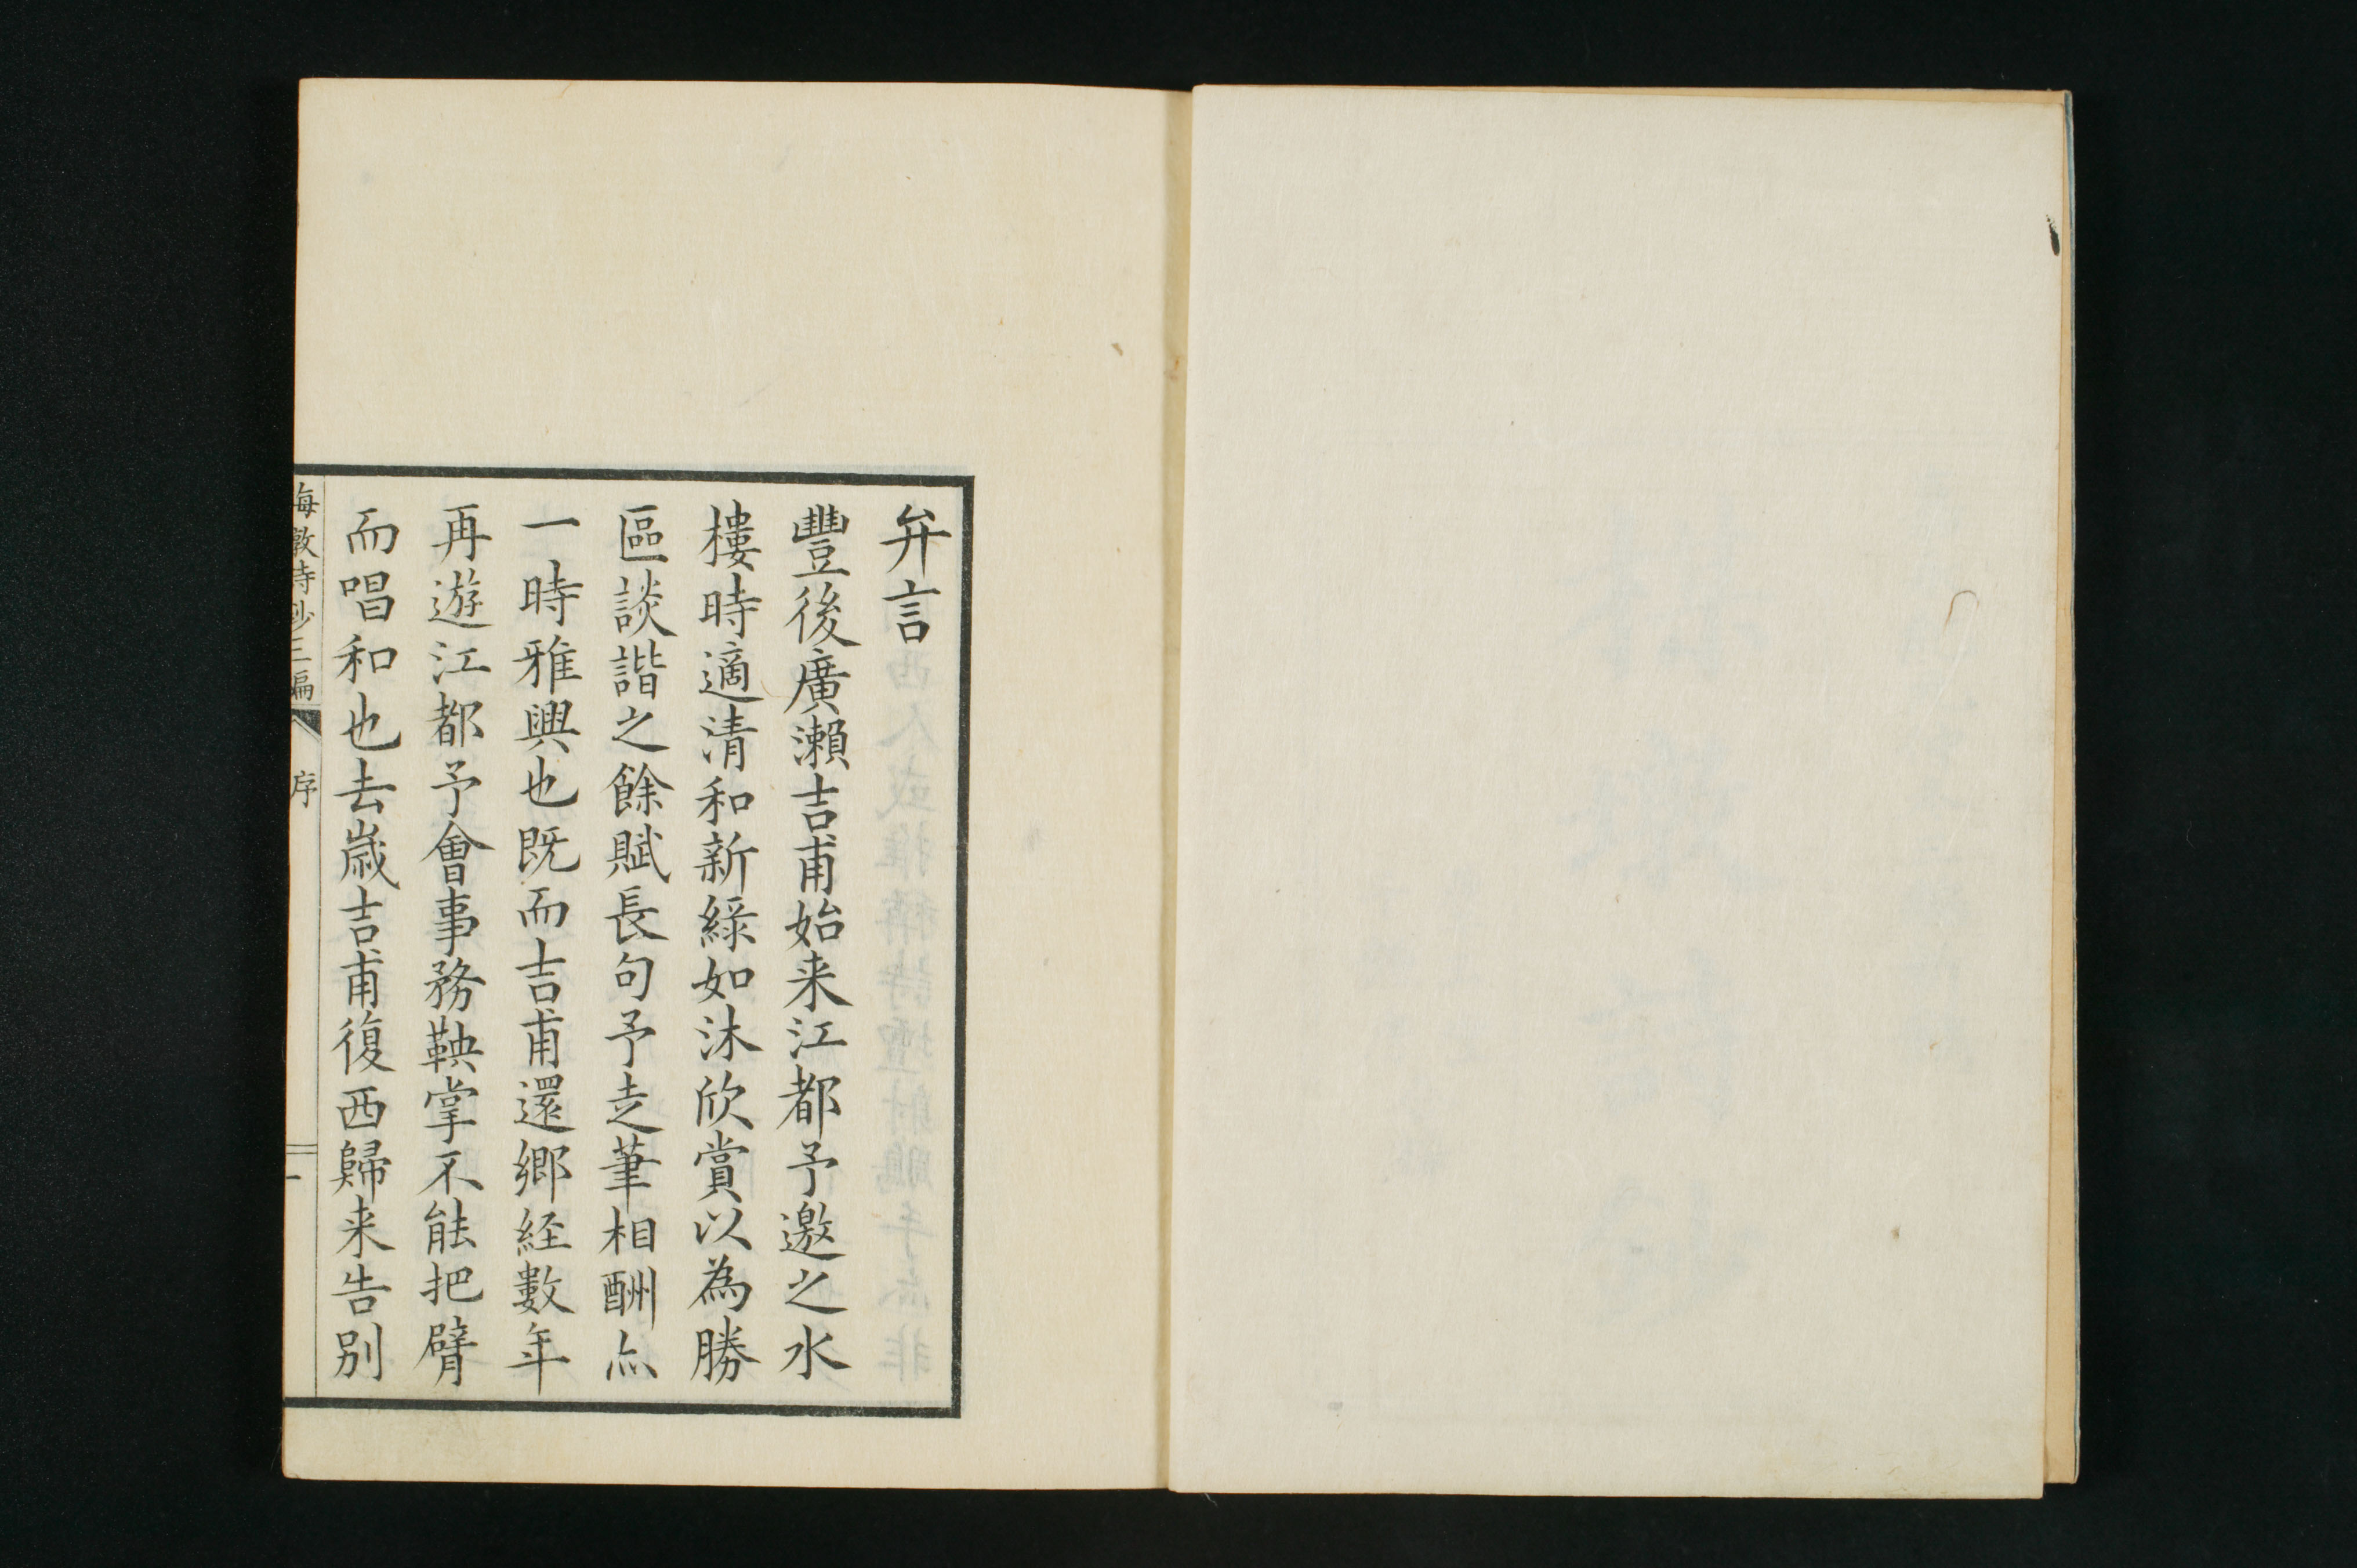 弁言
豐後廣瀨吉甫始来江都予邀之水
樓時適清和新綠如沐欣賞以為勝
區談諧之餘賦長句予走筆相酬亦
一時雅興也既而吉甫還鄉経數年
再遊江都予會事務鞅掌不能把臂
而唱和也去歲吉甫復西歸来告別
梅墩詩鈔三編 序 一